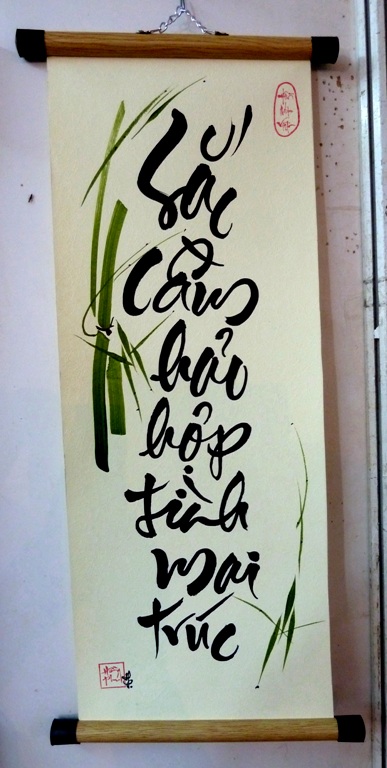 Sắc
Cầm
hảo
hợp
tình
mai
trúc